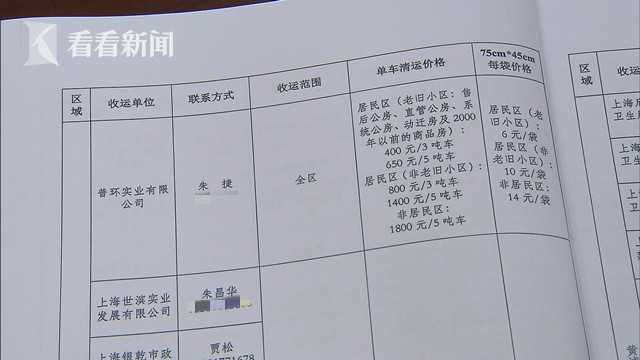 看看新闻
区域
收运单位
联系方式
收运范围
单车清运价格
75cm*45cm
每袋价格
收运
普环实业有限
公司
朱 捷
全区
居民区（老旧小区：售
后公房、直管公房、系
统公房、动迁房及2000
年以前的商品房）：
400 元/3 吨车
650 元/5 吨车
居民区（非老旧小区）：
800 元/3 吨车
1400 元/5 吨车
非居民区：
1800 元/5 吨车
居民区（老
旧小区）：
6 元/袋
居民区（非
老旧小区）：
10 元/袋
非居民区：
14 元/袋
上海世滨实业
发展有限公司
朱昌华
贾松
上海
卫生
上海
卫
上海
上海
黄